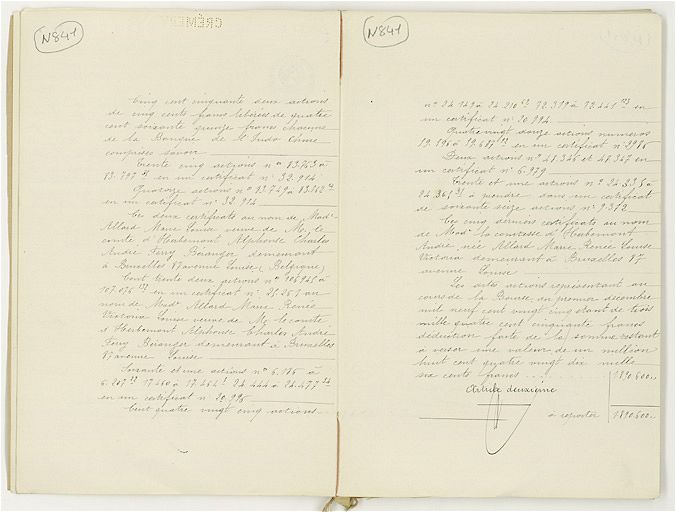 N841
Cinq cent cinquante deux actions
de cinq cents francs libérées de quatre
cent soixante quinze francs chacune
de la Banque de l'Indo Chine
comprises savoir
Trente cinq actions n° 13.763 à
en un certificat n° 32.914
Quatorze actions n° 13.749 à
en un certificat n° 32.914
Ces deux certificats au nom de Made
Allard Marie Louise veuve de M. le
comte d'Herbemont Alphonse Charles
André Fery Béranger demeurant
à Bruxelles 17 avenue Louise (Belgique)
Cent trente deux actions n° 106.945 à
en un certificat n° 25.257 au
nom de Made Allard Marie Renée
Victoria Louise veuve de M. le comte
d'Herbemont Alphonse Charles André
Fery Béranger demeurant à Bruxelles
17 avenue Louise
Soixante et une actions n° 6.176 à
6.207 17.460 à 24.444 à 24.477
en un certificat n° 20.995
Cent quatre vingt cinq actions
N841
n° 24.149 à 24.210 72.379 à en
un certificat n° 20.994
Quatre vingt douze actions numéros
19.596 à 19.687 en un certificat n° 3976
Deux actions n° 48.346 et 48.347 en
un certificat n° 6.979
Trente et une actions n° 24.335 à
24.365 à prendre sur un certificat
de soixante seize actions n° 9.372
Ces cinq derniers certificats au nom
de Made la comtesse d'Herbemont
André née Allard Marie Renée Louise
Victoria demeurant à Bruxelles 17
avenue Louise
Les dites actions représentant au
cours de la Bourse du premier décembre
mil neuf cent vingt cinq étant de trois
mille quatre cent cinquante francs
déduction faite de la somme restant
à verser une valeur de un million
huit cent quatre vingt dix mille
six cents francs 1.890.600
Article deuxième
à reporter 1.890.600